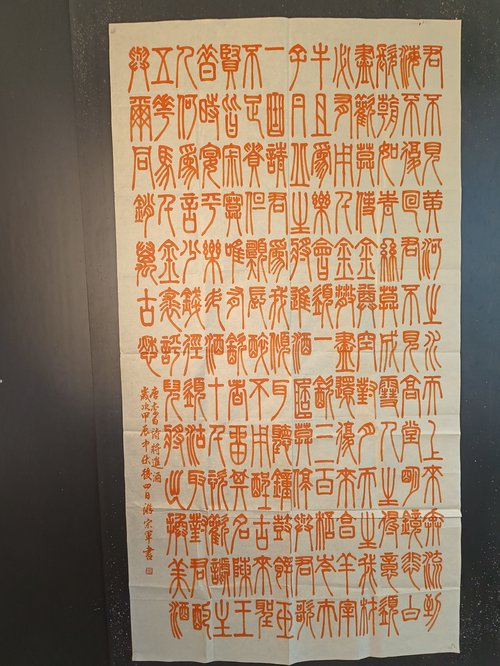 君不見黃河之水天上來奔流到
海不復回君不見高堂明鏡悲白
髮朝如青絲暮成雪人生得意須
盡歡莫使金尊空對月天生我材
必有用千金散盡還復來烹羊宰
牛且為樂會須一飲三百杯岑夫
子丹丘生將進酒杯莫停與君歌
一曲請君為我傾耳聽鐘鼓饌玉
不足貴但願長醉不用醒古來聖
賢皆寂寞唯有飲者留其名陳王
昔時宴平樂斗酒十千恣歡謔主
人何為言少錢徑須沽取對君酌
五花馬千金裘呼兒將出換美酒
與爾同銷萬古愁
唐李白詩將進酒
歲次甲辰中伏後四日游宗軍書